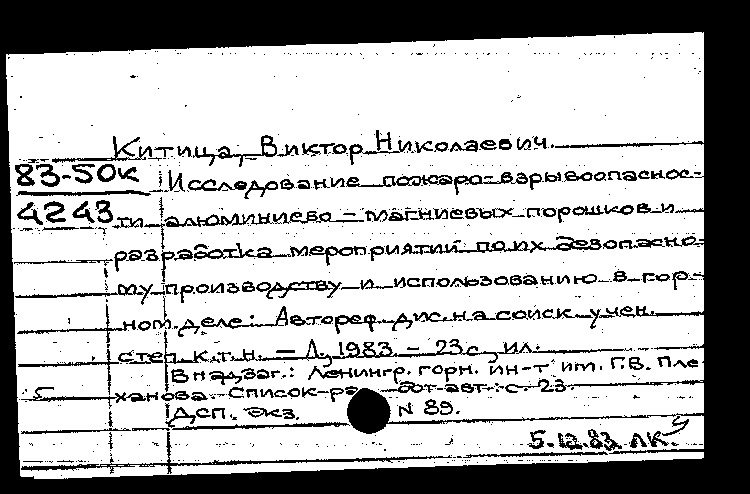 Китица, Виктор Николаевич.
83-50к Исследование пожаро-взрывоопаснос-
4243 ти алюминиево-магниевых порошков и
разработка мероприятий по их безопасно-
му производству и использованию в гор-
ном деле: Автореф. дис. на соиск. учен.
степ. к.т.н. – Л., 1983. – 23 с., ил.
В надзаг.: Ленингр. горн. ин-т им. Г.В. Пле-
5 ханова. Список ра бот авт.: с. 23.
Дсп. Экз. N 89.
5.12.83 ЛК.